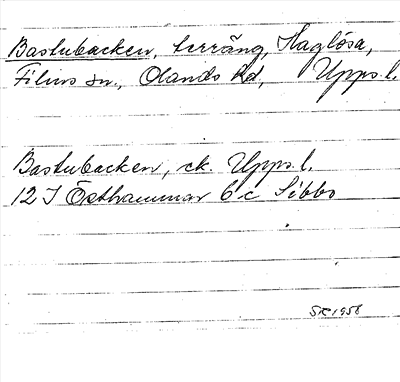 Bastubacken, terräng, Haglösa,
Films sn., Olands hd, Upps. l.
Bastubacken, ek. Upps. l.
12 I Östhammar 6 c Sibbo
SR 1958